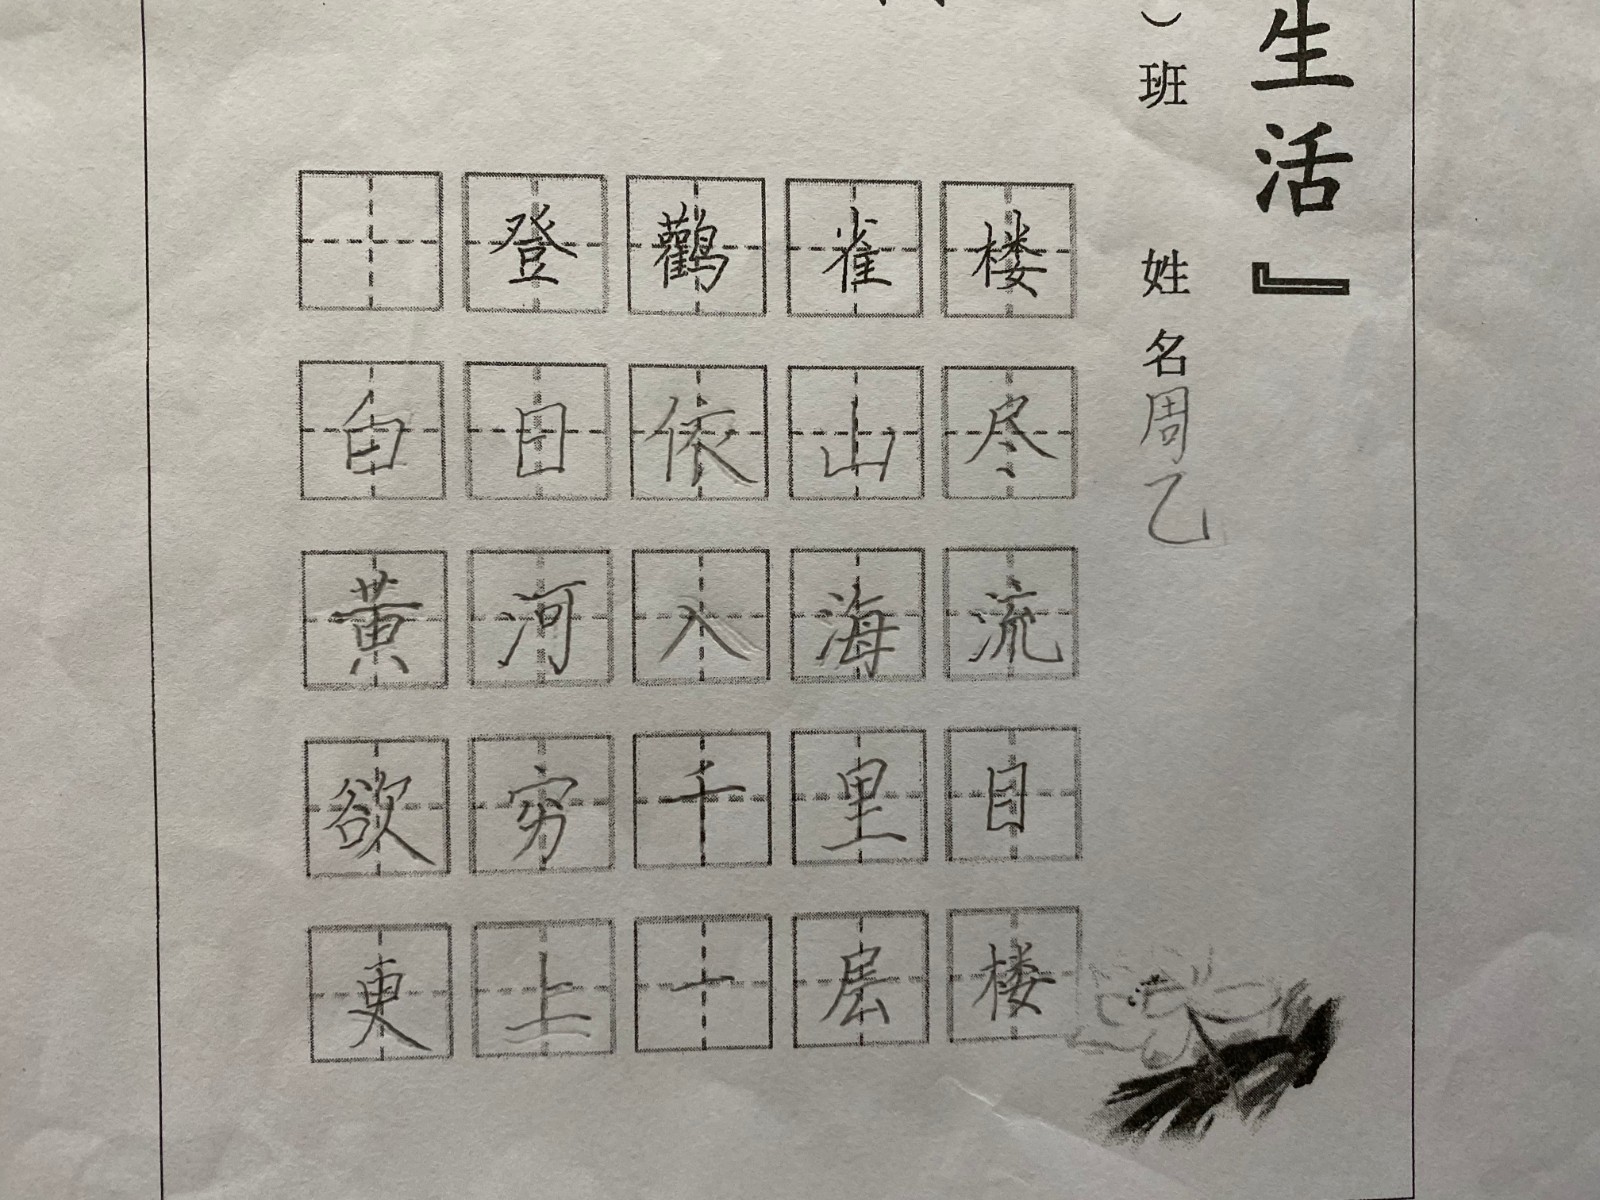 生活』
）班 姓名周乙
登鸛雀楼
白日依山尽
黄河入海流
欲穷千里目
更上一层楼